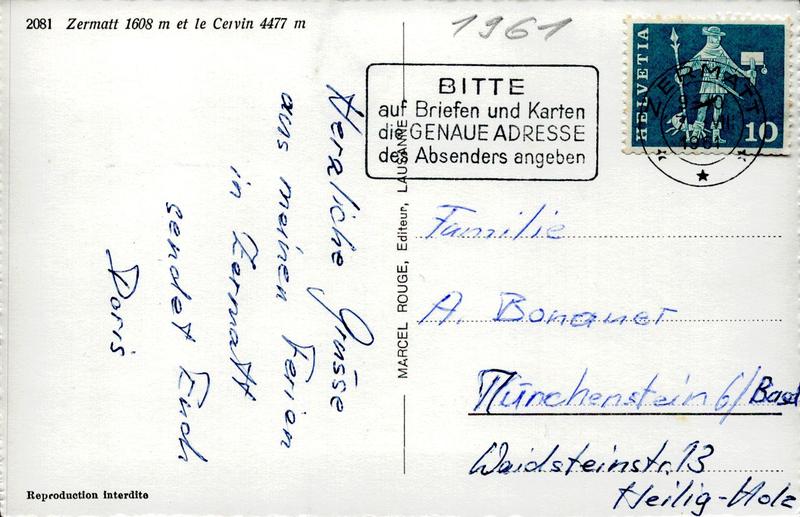 2081 Zermatt 1608 m et le Cervin 4477 m
1961
BITTE
auf Briefen und Karten
die GENAUE ADRESSE
des Absenders angeben
HELVETIA
10
ZERMATT
1961
Herzliche Grüsse
aus meinen Ferien
in Zermatt
sendet Euch
Doris
MARCEL ROUGE, Editeur, LAUSANNE
Familie
A. Bonauer
Münchenstein 6/Basel
Waidsteinstr. 13
Heilig-Holz
Reproduction interdite